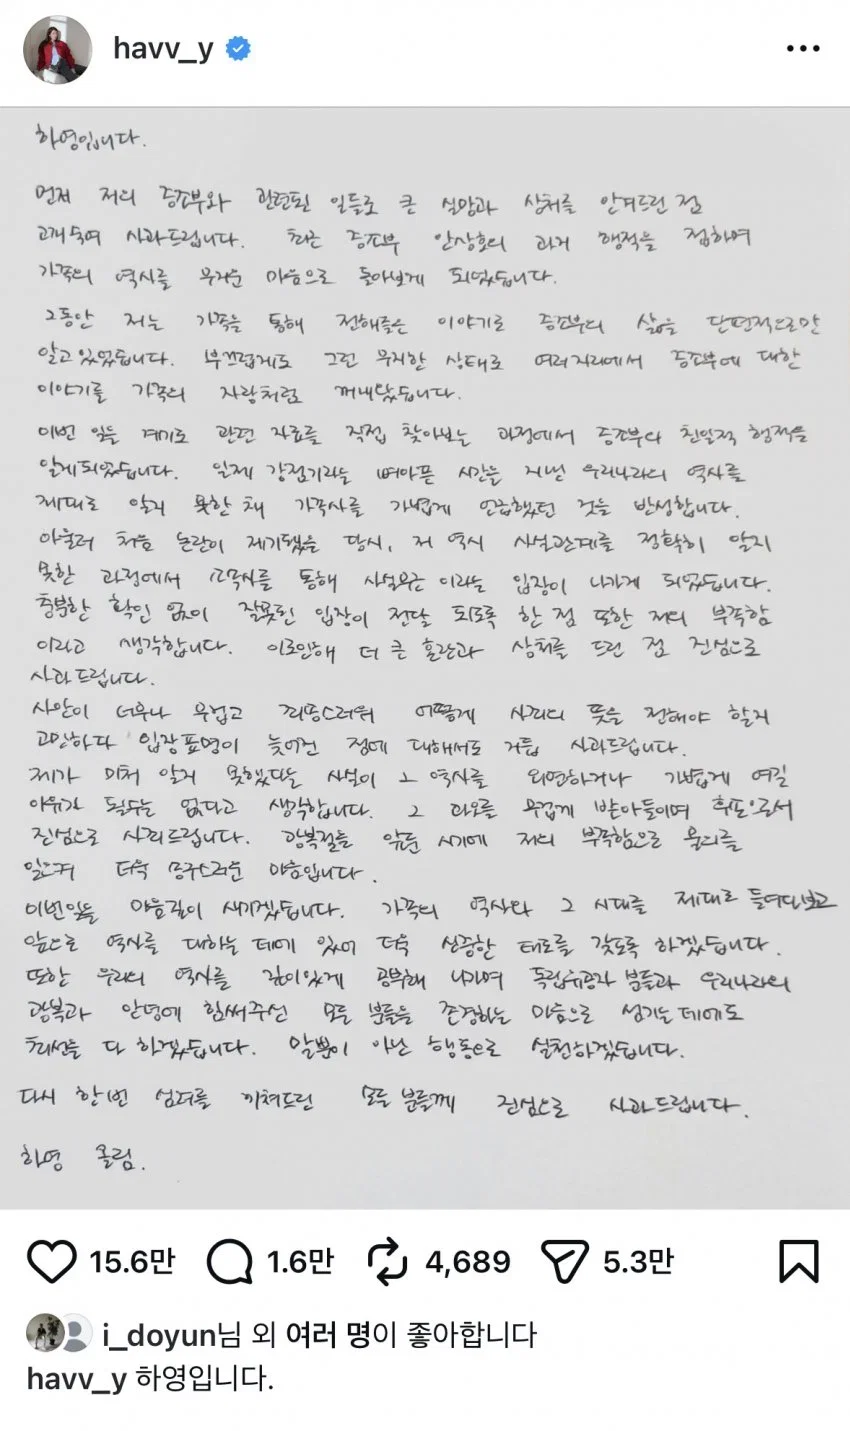 havv_y
하영입니다.
먼저 저의 증조부와 관련된 일들로 큰 실망과 상처를 안겨드린 점
고개숙여 사과드립니다. 최근 증조부 안상호의 과거 행적을 접하며
가족의 역사를 무거운 마음으로 돌아보게 되었습니다.
그동안 저는 가족을 통해 전해들은 이야기로 증조부의 삶을 단편적으로만
알고있었습니다. 부끄럽게도 그런 무지한 상태로 여러자리에서 증조부에 대한
이야기를 가족의 자랑처럼 꺼내왔습니다.
이번 일을 계기로 관련 자료를 직접 찾아보는 과정에서 증조부의 친일적 행적을
알게되었습니다. 일제 강점기라는 뼈아픈 시간을 지닌 우리나라의 역사를
제대로 알지 못한 채 가족사를 가볍게 언급했던 것을 반성합니다.
아울러 처음 논란이 제기됐을 당시, 저 역시 사실관계를 정확히 알지
못한 과정에서 소속사를 통해 사실무근 이라는 입장이 나가게 되었습니다.
충분한 확인 없이 잘못된 입장이 전달 되도록 한 점 또한 저의 부족함
이라고 생각합니다. 이로인해 더 큰 혼란과 상처를 드린 점 진심으로
사과드립니다.
사안이 너무나 무겁고 죄송스러워 어떻게 사죄의 뜻을 전해야 할지
고민하다 입장표명이 늦어진 점에 대해서도 거듭 사과드립니다.
제가 미처 알지 못했다는 사실이 그 역사를 외면하거나 가볍게 여길
이유가 될수는 없다고 생각합니다. 그 과오를 무겁게 받아들이며 후손으로서
진심으로 사죄드립니다. 광복절을 앞둔 시기에 저의 부족함으로 물의를
일으켜 더욱 송구스러운 마음입니다.
이번일을 마음깊이 새기겠습니다. 가족의 역사와 그 시대를 제대로 들여다보고
앞으로 역사를 대하는 데에 있어 더욱 신중한 태도를 갖도록 하겠습니다.
또한 우리의 역사를 깊이있게 공부해 나가며 독립유공자 분들과 우리나라의
광복과 안녕에 힘써주신 모든 분들을 존경하는 마음으로 섬기는데에도
최선을 다 하겠습니다. 말뿐이 아닌 행동으로 실천하겠습니다.
다시 한번 심려를 끼쳐드린 모든 분들께 진심으로 사과드립니다.
하영 올림.
15.6만 1.6만 4,689 5.3만
i_doyun님 외 여러 명이 좋아합니다
havv_y 하영입니다.